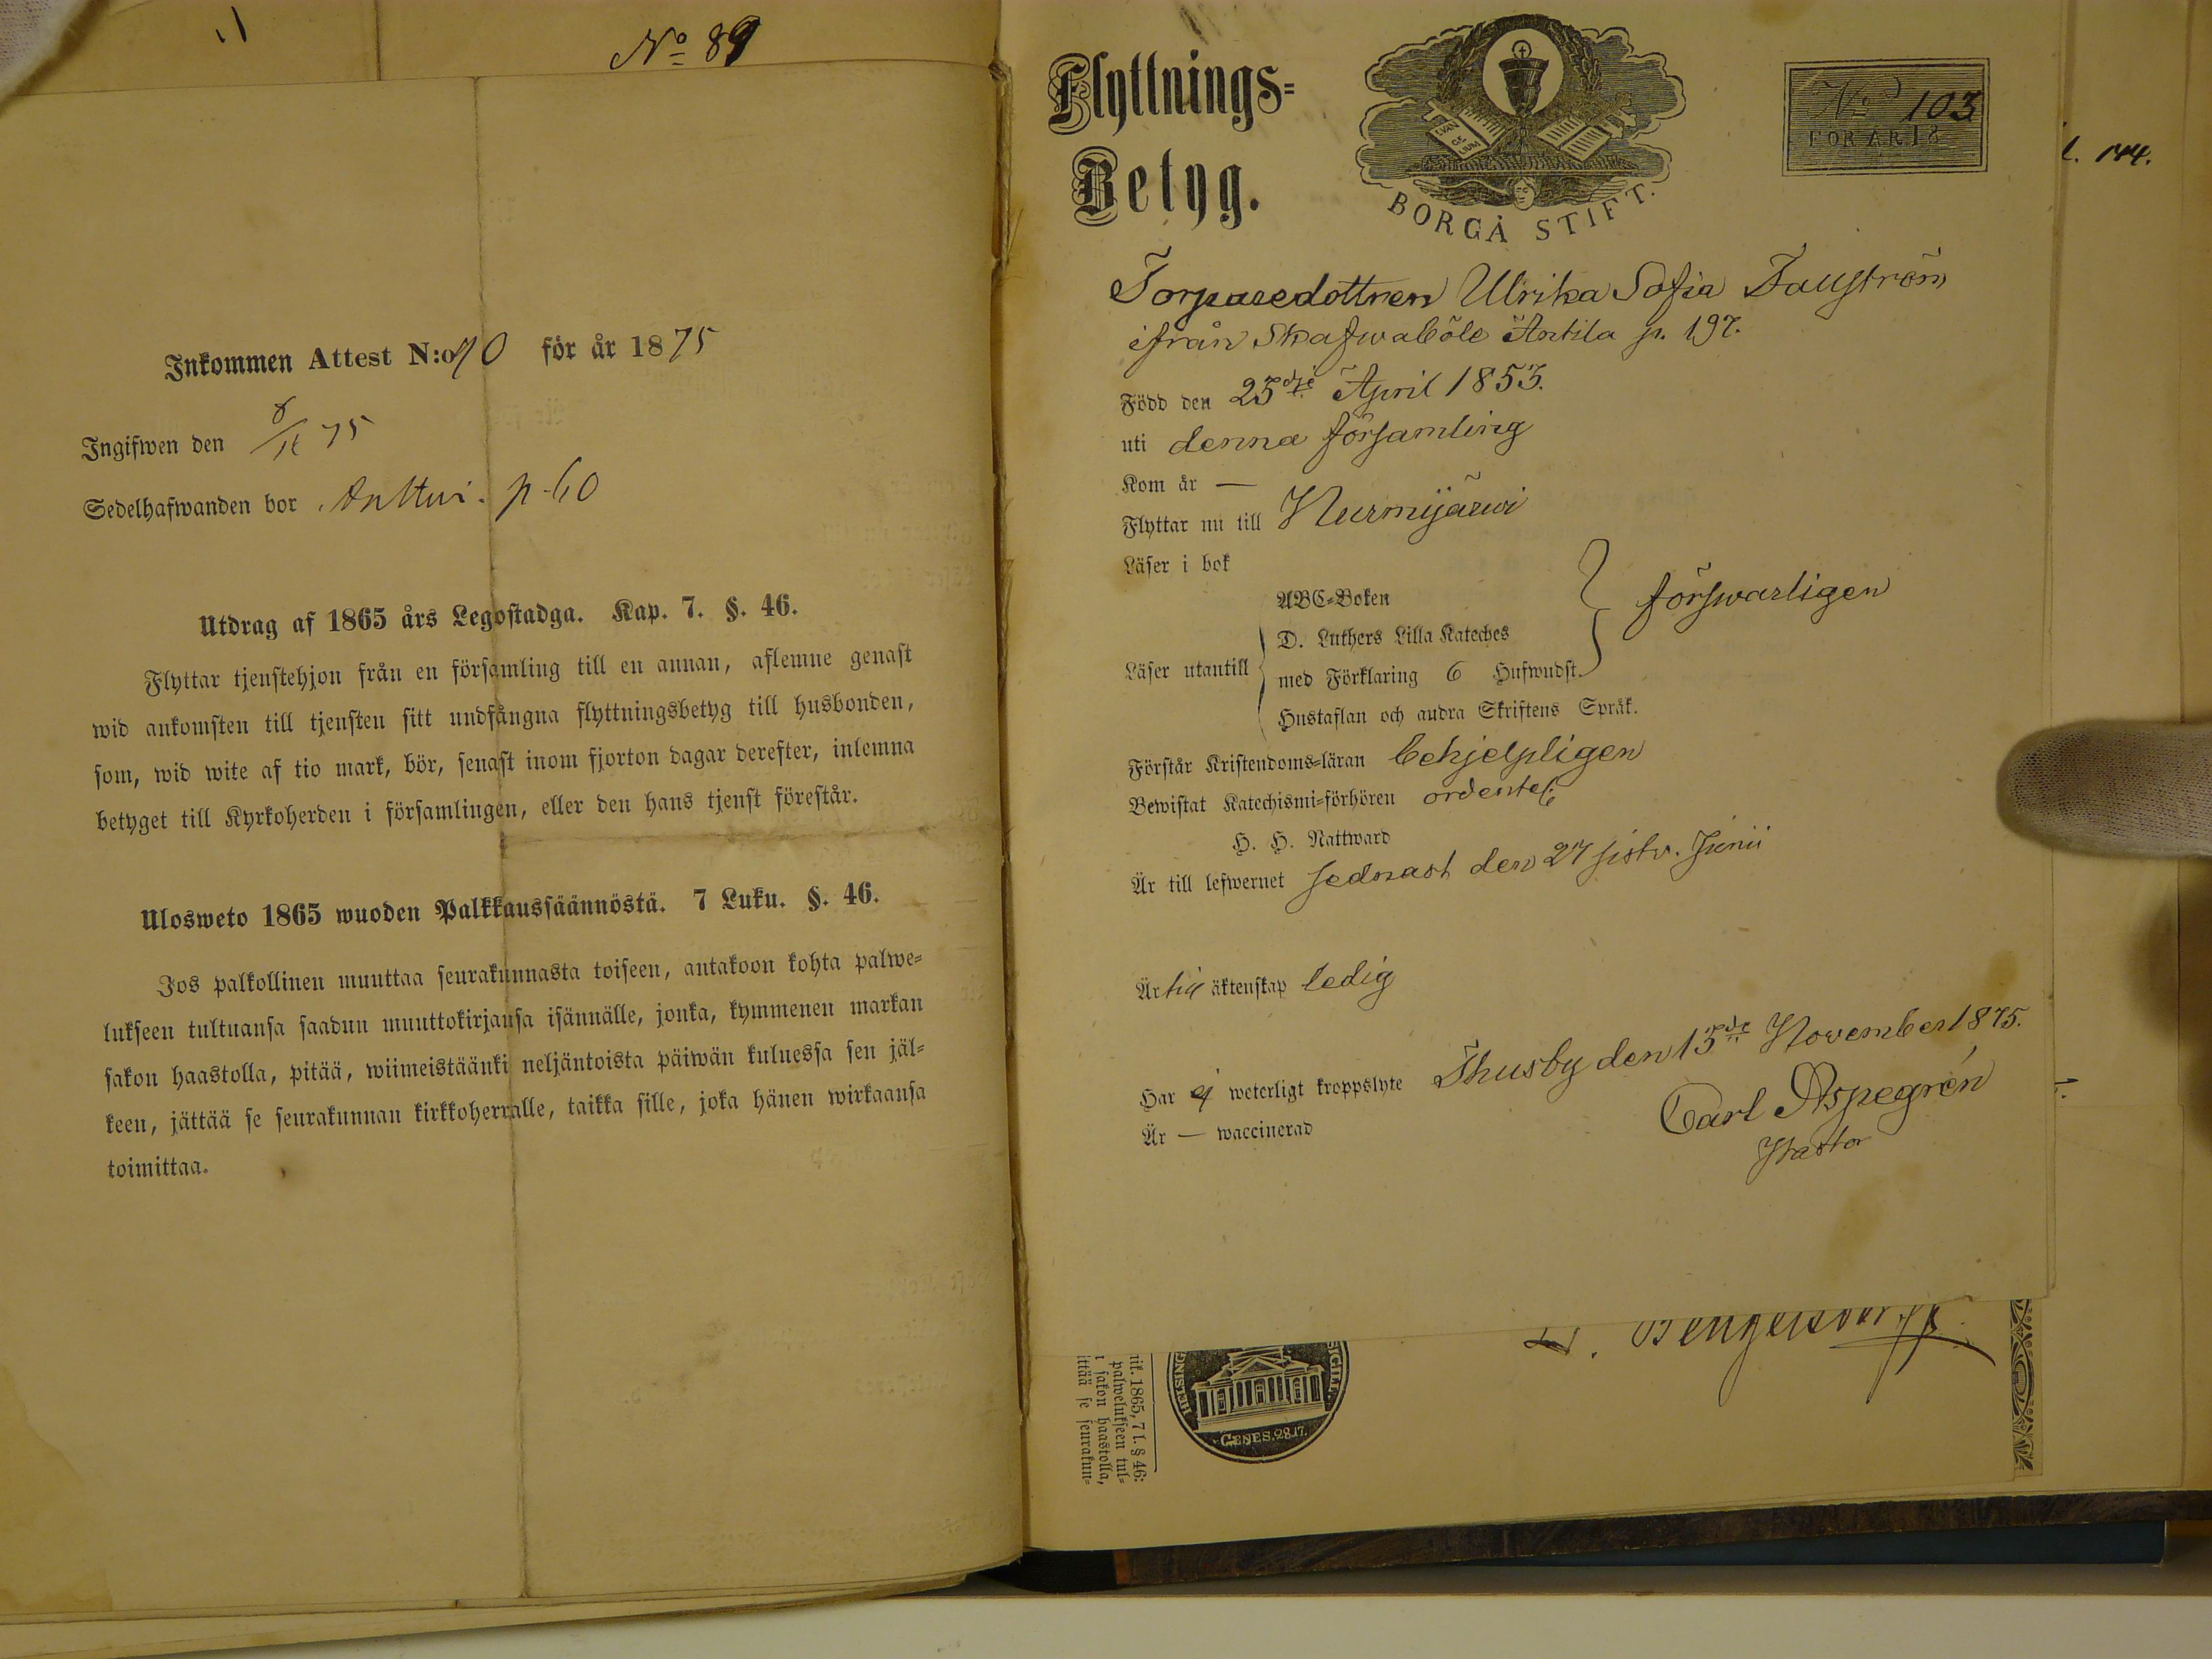 No 89
Inkommen Attest N:o 90 för år 1875
Ingifwen den 75
Sedelhafwanden bor Anttui. p. 60
Utdrag af 1865 års Legostadga. Kap. 7. §. 46.
Flyttar tjenstehjon från en församling till en annan, aflemne genast
wid ankomsten till tjensten sitt undfångna flyttningsbetyg till husbonden,
som, wid wite af tio mark, bör, senast inom fjorton dagar derefter, inlemna
betyget till Kyrkoherden i församlingen, eller den hans tjenst förestår.
Ulosweto 1865 wuoden Palkkaussäännöstä. 7 Luku. §. 46.
Jos palkollinen muuttaa seurakunnasta toiseen, antakoon kohta palwe=
lukseen tultuansa saadun muuttokirjansa isännälle, jonka, kymmenen markan
sakon haastolla, pitää, wiimeistäänki neljäntoista päiwän kuluessa sen jäl=
keen, jättää se seurakunnan kirkkoherralle, taikka sille, joka hänen wirkaansa
toimittaa.
Flyttnings=
Betyg.
EVAN
GE
LIUM
BORGÅ STIFT.
No 103
FÖR ÅR 18
l. 144.
Torparedottren Ulrika Sofia
ifrån Skafwaböle Antila p. 197.
Född den 23dje April 1853.
uti denna församling
Kom år —
Flyttar nu till Nurmijärwi
Läser i bok
Läser utantill
ABC=Boken
D. Luthers Lilla Kateches
med Förklaring 6 Hufwudst.
Hustaflan och andra Skriftens Språk.
förswarligen
Förstår Kristendoms=läran behjelpligen
Bewistat Katechismi=förhören ordentel:
H. H. Nattward
Är till lefwernet sednast den 27 sistv. Junii
Är till äktenskap ledig
Har ej weterligt kroppslyte
Är — waccinerad
Thusby den 15de November 1875.
Carl Aspegrén
Pastor
GENES. 28.17.
1865, 7 l. § 46:
palwelukseen tul=
sakon haastolla,
ttää se seurakun=